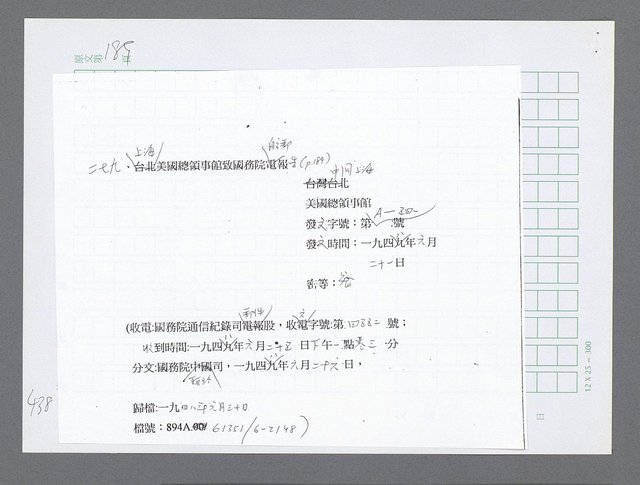 原文第185頁
上海
二七九．台北美國總領事館致國務院電報(p.189)
中國上海
台灣台北
美國總領事館
A-
發文字號：第 號
發文時間：一九四九年六月
二十一日
密等：
郵件
(收電:國務院通信紀錄司電報股，收電字號:第 四五五二 號；
收到時間:一九四九年六月二十五日下午一點卷三分
分文:國務院中國司，一九四九年六月二十六日，
歸檔:一九四八年六月三十日
檔號：894A.00/ 61351/6-2148)
438
12 X 25 = 300